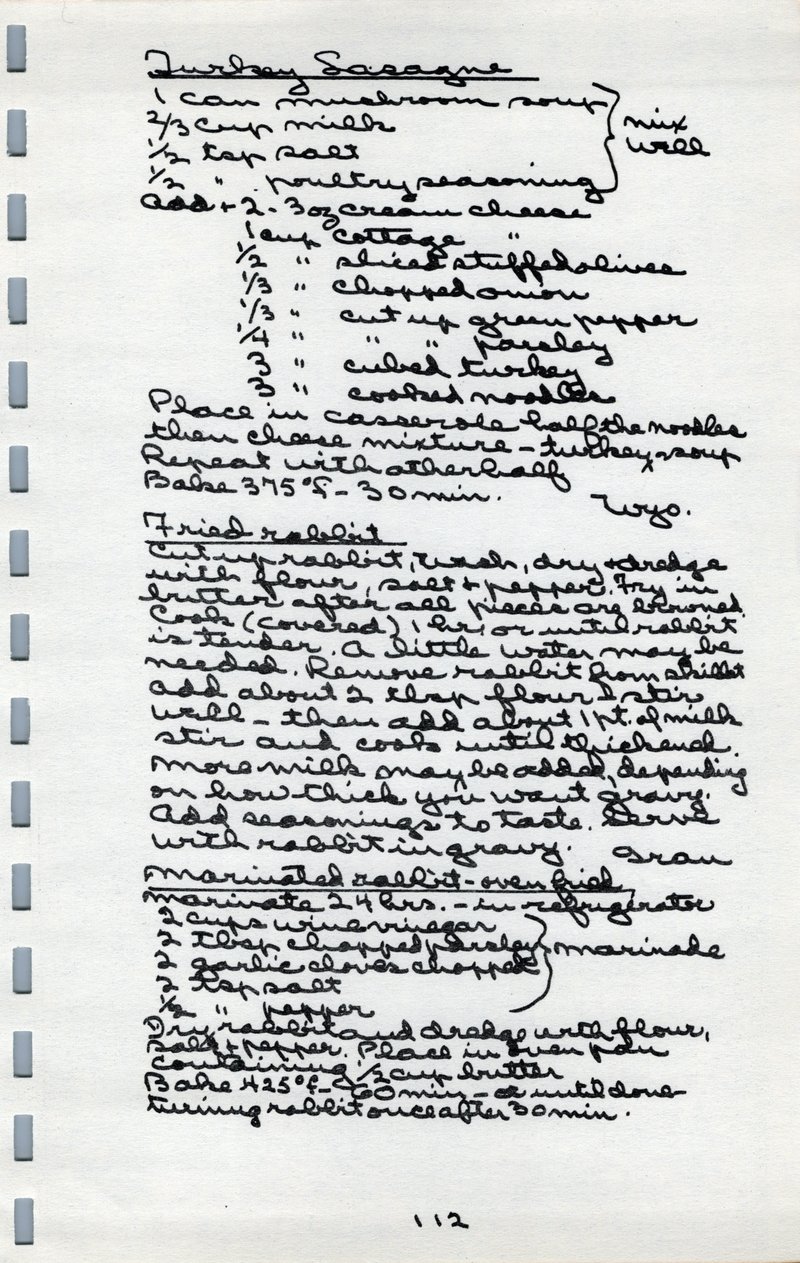 Turkey Lasagne
1 can mushroom soup
2/3 cup milk
1/2 tsp salt
1/2 " poultry seasoning
} mix well
Add + 2 - 3 oz cream cheese
1 cup cottage "
1/2 " sliced stuffed olives
1/3 " chopped onion
1/3 " cut up green pepper
1/4 " " " parsley
3 " cubed turkey
3 " cooked noodles
Place in casserole half the noodles
then cheese mixture - turkey, soup
Repeat with other half
Bake 375°F - 30 min.
Wyo.
Fried rabbit
Cut up rabbit, wash, dry + dredge
with flour, salt + pepper. Fry in
butter after all pieces are browned.
Cook (covered) 1 hr, or until rabbit
is tender. A little water may be
needed. Remove rabbit from skillet
add about 2 tbsp flour & stir
well - then add about 1 pt. of milk
stir and cook until thickened.
More milk may be added, depending
on how thick you want gravy.
Add seasonings to taste. Serve
with rabbit in gravy.
Gran
Marinated rabbit - oven fried
Marinate 24 hrs. - in refrigerator
2 cups wine vinegar
2 tbsp chopped parsley
2 garlic cloves chopped
2 tsp salt
1/2 " pepper
} marinade
Dry rabbit and dredge with flour,
salt + pepper. Place in oven pan
containing 1/2 cup butter
Bake 425°F - 60 min - or until done
turning rabbit once after 30 min.
112